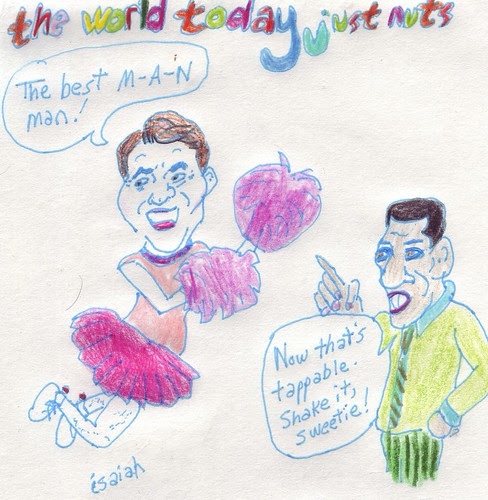 the world today just nuts
The best M-A-N
man!
Now that's
tappable.
Shake it,
sweetie!
isaiah